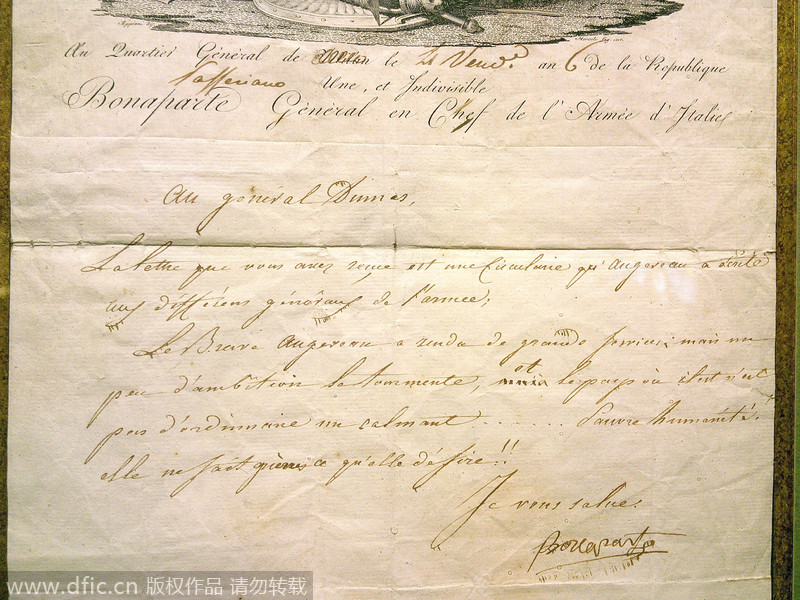 Au Quartier Général de Milan le 21 Vend.re an 6 de la Republique
Passeriano Une, et Indivisible
Bonaparte Général en Chef de l'Armée d'Italie
Au général Dumas,
La lettre que vous avez reçue est une Circulaire qu'augereau a écrite
aux différens généraux de l'armée;
Le Brave augereau a rendu de grands services; mais un
peu d'ambition le tourmente, et le pays où il est n'est
pas d'ordinaire un calmant . . . . . . . Pauvre humanité!
elle ne sait guères ce qu'elle désire!!
Je vous salue.
Bonaparte
www.dfic.cn 版权作品 请勿转载